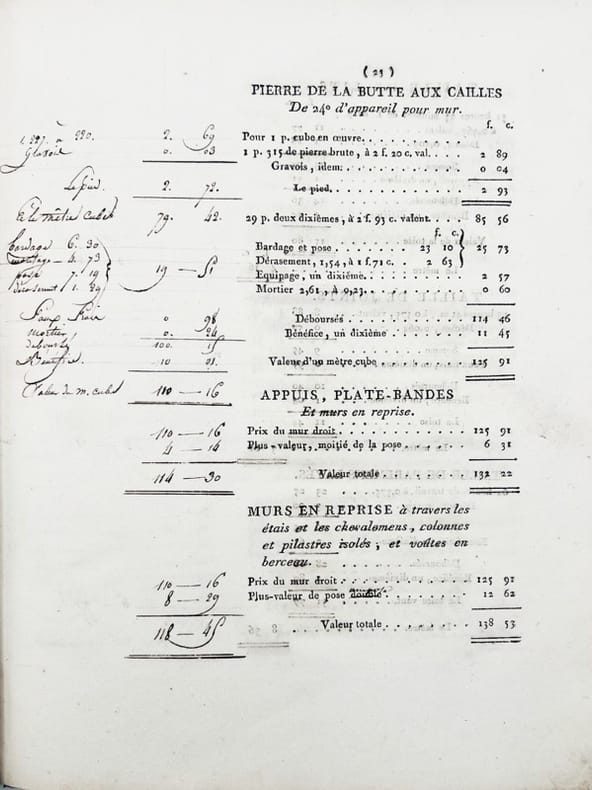 ( 23 )
PIERRE DE LA BUTTE AUX CAILLES
De 24° d'appareil pour mur.
f. c.
Pour 1 p. cube en œuvre.
1 p. 315 de pierre brute, à 2 f. 20 c. val. 2 89
Gravois, idem. 0 04
Le pied. 2 93
29 p. deux dixièmes, à 2 f. 93 c. valent. 85 56
f. c.
Bardage et pose 23 10
Dérasement, 1,54, à 1 f. 71 c. 2 63
25 73
Equipage, un dixième. 2 57
Mortier 2,61, à 0,23. 0 60
Déboursés 114 46
Bénéfice, un dixième 11 45
Valeur d'un mètre cube 125 91
APPUIS, PLATE-BANDES
Et murs en reprise.
Prix du mur droit. 125 91
Plus-valeur, moitié de la pose 6 31
Valeur totale. 132 22
MURS EN REPRISE à travers les
étais et les chevalemens, colonnes
et pilastres isolés; et voûtes en
berceau.
Prix du mur droit. 125 91
Plus-valeur de pose double. 12 62
Valeur totale. 138 53
2. 69
0. 03
Le pied 2. 72.
Le mètre cube 79. 42.
bardage 6. 30
4. 73
pose 7. 19
1. 29
19 — 51
faux frais 0 98
mortier 0. 24
déboursés 100. 15
Bénéfice. 10 01.
Valeur du m. cube 110 — 16
110 — 16
4 — 14
114 — 30
110 — 16
8 — 29
118 — 45